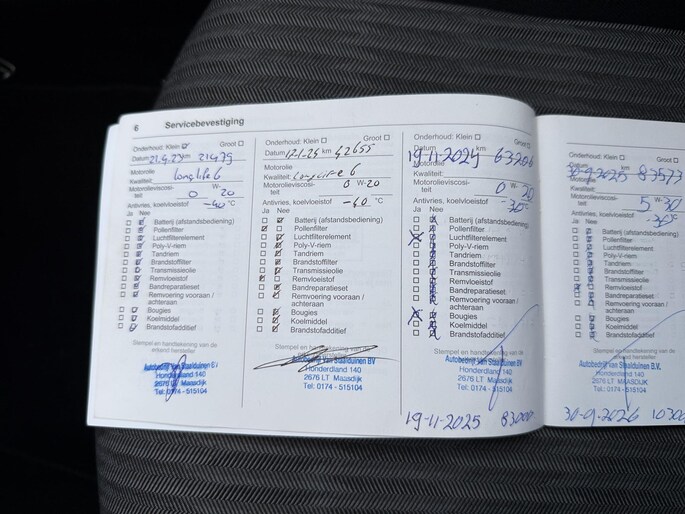 6 Servicebevestiging
Onderhoud: Klein Groot
Datum 21.4.23 km 21475
Motorolie
Kwaliteit: Longlife 6
Motorolieviscosi- W-
teit 0 20
Antivries, koelvloeistof -40 °C
Ja Nee
Batterij (afstandsbediening)
Pollenfilter
Luchtfilterelement
Poly-V-riem
Tandriem
Brandstoffilter
Transmissieolie
Remvloeistof
Bandreparatieset
Remvoering vooraan /
achteraan
Bougies
Koelmiddel
Brandstofadditief
Stempel en handtekening van de
erkend hersteller
Autobedrijf van Staalduinen B.V.
Honderdland 140
2676 LT Maasdijk
Tel: 0174 - 515104
Onderhoud: Klein Groot
Datum 12-1-24 km 42655
Motorolie
Kwaliteit: Longlife 6
Motorolieviscosi- 0 W-20
teit
Antivries, koelvloeistof -40 °C
Ja Nee
Batterij (afstandsbediening)
Pollenfilter
Luchtfilterelement
Poly-V-riem
Tandriem
Brandstoffilter
Transmissieolie
Remvloeistof
Bandreparatieset
Remvoering vooraan /
achteraan
Bougies
Koelmiddel
Brandstofadditief
Stempel en handtekening van de
Autobedrijf van Staalduinen BV
Honderdland 140
2676 LT Maasdijk
Tel: 0174 - 515104
Onderhoud: Klein Groot
Datum 19-11-2024 km 63206
Motorolie
Kwaliteit:
Motorolieviscosi- W-
teit 0 20
Antivries, koelvloeistof -30 °C
Ja Nee
Batterij (afstandsbediening)
Pollenfilter
Luchtfilterelement
Poly-V-riem
Tandriem
Brandstoffilter
Transmissieolie
Remvloeistof
Bandreparatieset
Remvoering vooraan /
achteraan
Bougies
Koelmiddel
Brandstofadditief
Stempel en handtekening van de
Autobedrijf van Staalduinen BV
Honderdland 140
2676 LT Maasdijk
Tel: 0174 - 515104
19-11-2025 83000
Onderhoud: Klein Groot
30-9-2025 83573
Motorolie
Kwaliteit:
Motorolieviscosi- W-
teit 5 30
Antivries, koelvloeistof -30 °C
Ja Nee
Batterij (afstandsbediening)
Pollenfilter
Luchtfilterelement
Poly-V-riem
Tandriem
Brandstoffilter
Transmissieolie
Remvloeistof
Bandreparatieset
Remvoering vooraan /
achteraan
Bougies
Koelmiddel
Brandstofadditief
Stempel en handtekening van de
Autobedrijf van Staalduinen B.V.
Honderdland 140
2676 LT MAASDIJK
Tel.: 0174 - 515104
30-9-2026 10300